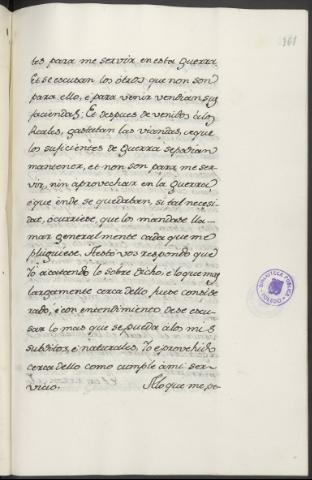 361
tes para me servir en esta Guerra,
Et se escusan los ótros que non son
para ello, e para venir vendian sus
faciendas; Et despues de venidos á los
Reales, gastaban las viandas, e que
los suficientes de Guerra se podian
mantener, et non son para me ser-
vir, nin aprovechar en la Guerra:
e que ende se quedaban, si tal necesi-
dat, ócurriese, que los mandase lla-
mar generalmente cada que me
pluguiese. A esto vos respondo que
Yo acatando lo sobre dicho, e lo que muy
largamente cerca dello fuese conside-
rado, e con entendimiento de se escu-
sar lo mas que se pueda á los mis
subditos, e naturales, Yo e provehido
cerca dello como cumple á mi ser-
vicio. A lo que me pe-
BIBLIOTECA PUBLICA
TOLEDO